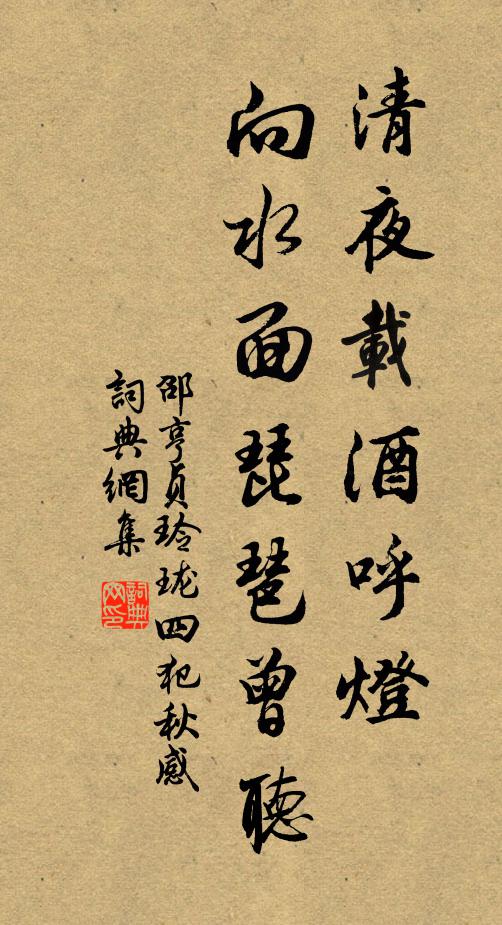 清夜載酒呼燈
向水面琵琶曾聽
邵亨貞玲瓏四犯秋感
詞典網集
詞典
网印